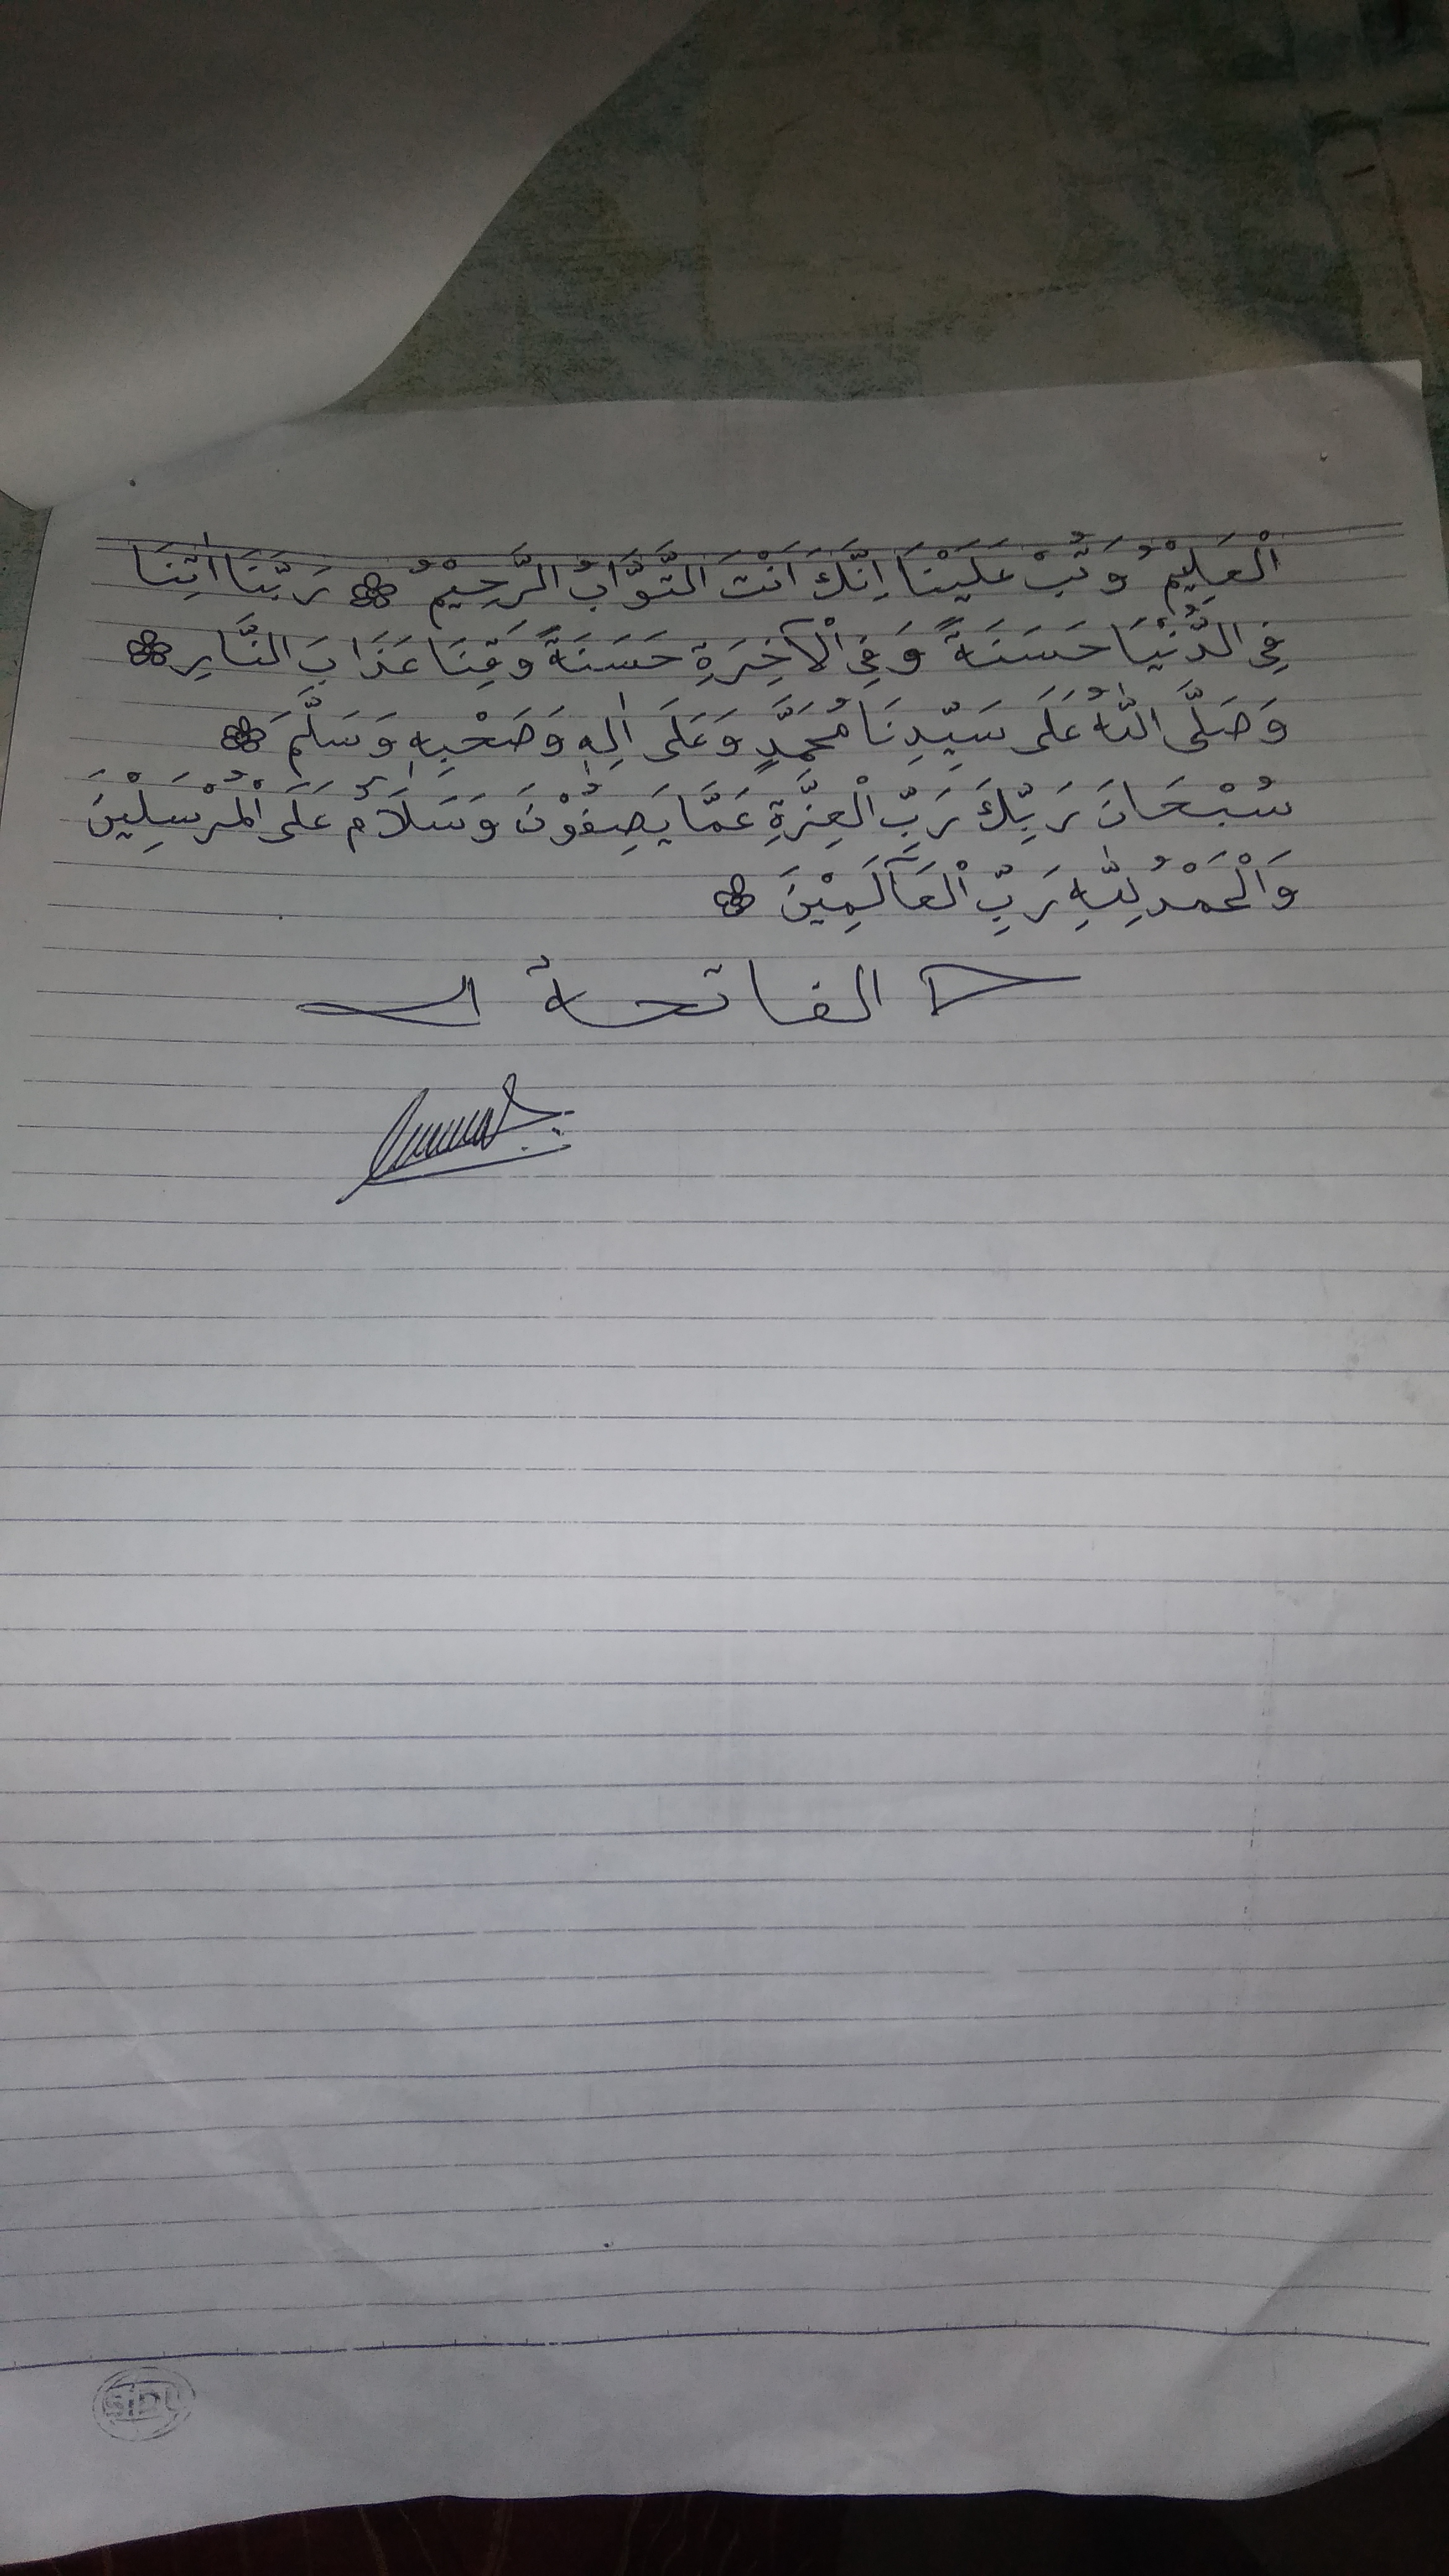 الْعَلِيْمُ وَتُبْ عَلَيْنَا اِنَّكَ اَنْتَ التَّوَّابُ الرَّحِيْمُ رَبَّنَا اٰتِنَا
فِى الدُّنْيَا حَسَنَةً وَفِى الْآخِرَةِ حَسَنَةً وَقِنَا عَذَابَ النَّارِ
وَصَلَّى اللّٰهُ عَلَى سَيِّدِنَا مُحَمَّدٍ وَعَلَى اٰلِهٖ وَصَحْبِهٖ وَسَلَّمَ
سُبْحَانَ رَبِّكَ رَبِّ الْعِزَّةِ عَمَّا يَصِفُوْنَ وَسَلَامٌ عَلَى الْمُرْسَلِيْنَ
وَالْحَمْدُ لِلّٰهِ رَبِّ الْعَآلَمِيْنَ
الفاتحة
SIDU